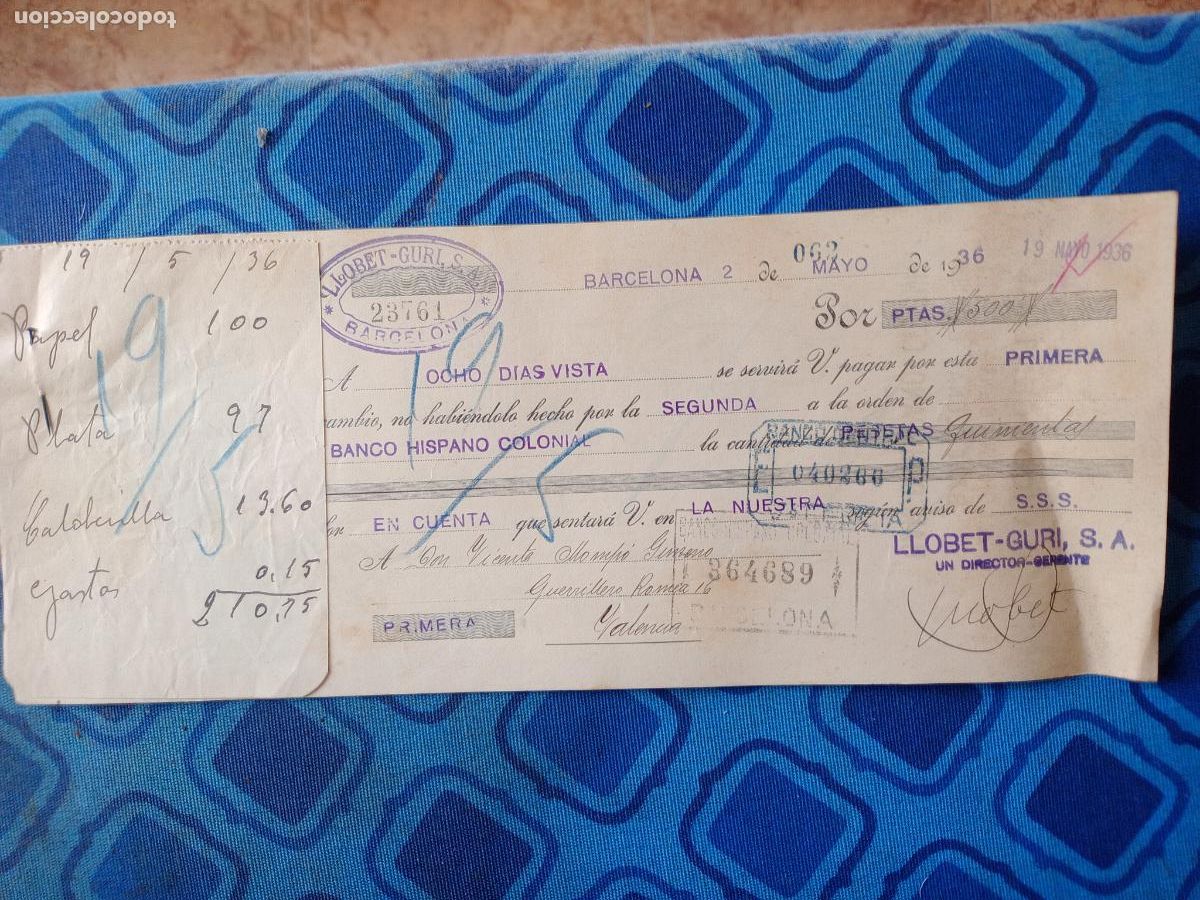 todocoleccion
19 / 5 / 36
Papel 100
Plata 97
Calderilla 13.60
Gastos 0,15
210,75
19/5
LLOBET-GURI, S.A.
23761
* BARCELONA *
19/5
062
BARCELONA 2 de MAYO de 1936
19 MAYO 1936
Por PTAS. //500//
A OCHO DIAS VISTA se servirá V. pagar por esta PRIMERA
cambio, no habiéndolo hecho por la SEGUNDA a la orden de
BANCO HISPANO COLONIAL la cantidad de PESETAS Quinientas
E 040266 P
EN CUENTA que sentará V. en LA NUESTRA según aviso de S.S.S.
LLOBET-GURI, S. A.
UN DIRECTOR-GERENTE
A Don Vicente Mompó Gimeno
Guerrillero Romeu 16
Valencia
PRIMERA
364689
BARCELONA